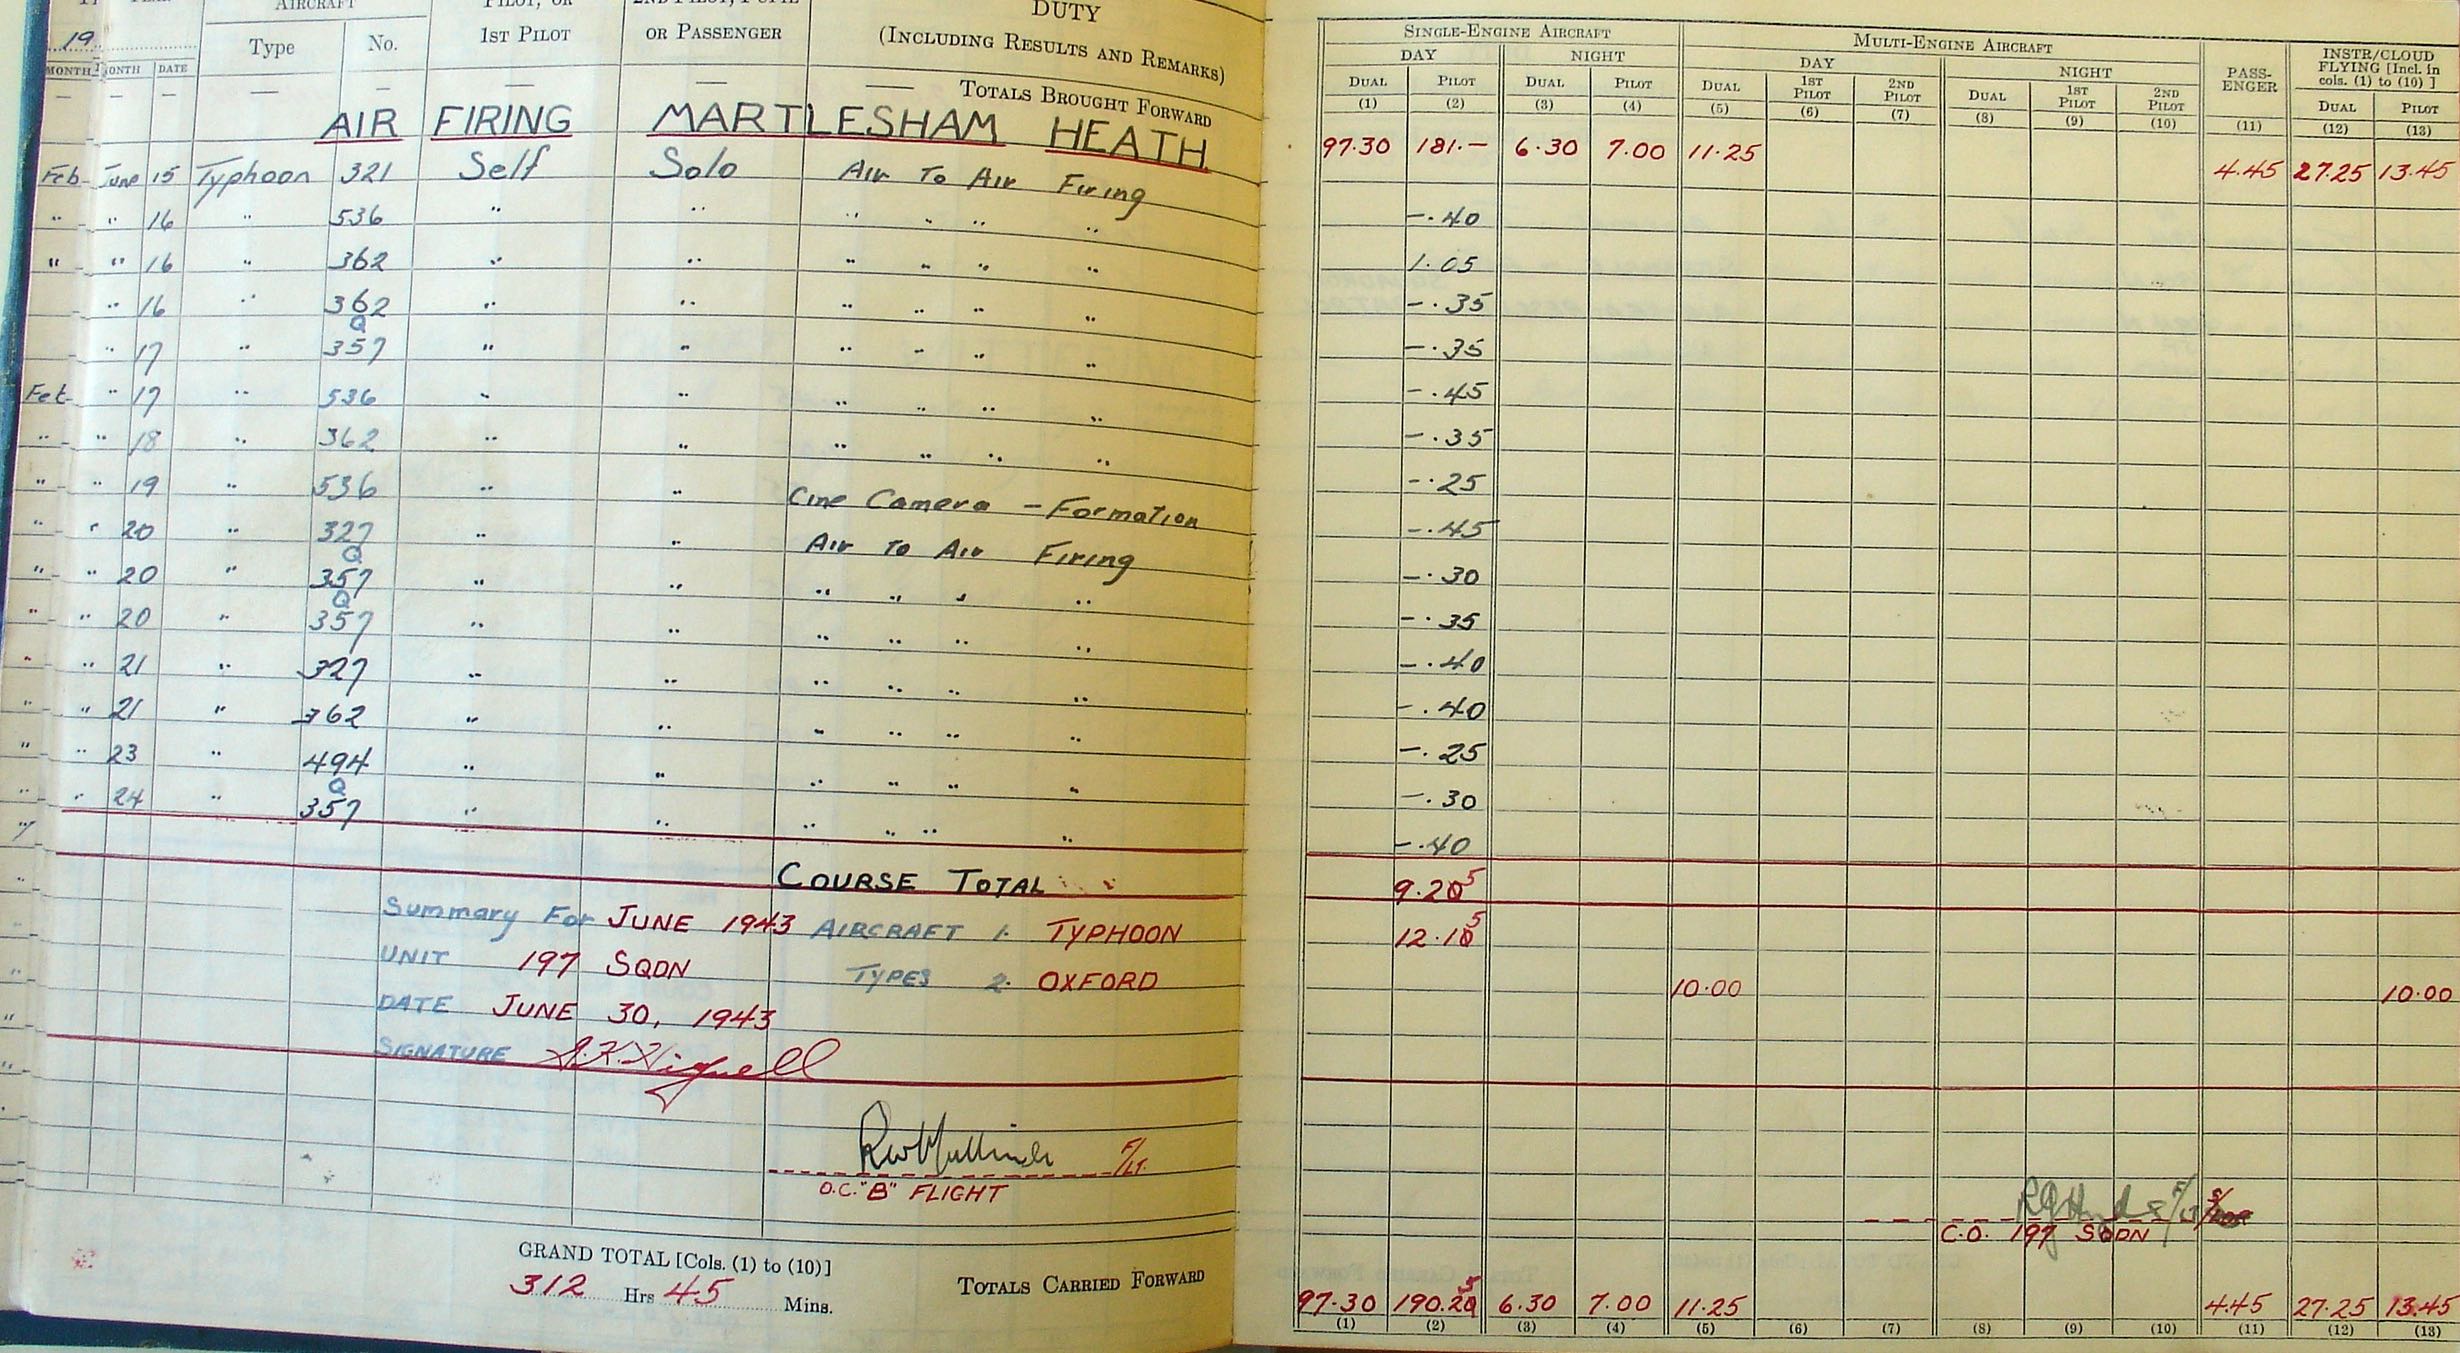 AIRCRAFT PILOT, OR 2ND PILOT, PUPIL DUTY
19 Type No. 1ST PILOT OR PASSENGER (INCLUDING RESULTS AND REMARKS)
MONTH MONTH DATE
— — — — — — — — TOTALS BROUGHT FORWARD
AIR FIRING MARTLESHAM HEATH
Feb June 15 Typhoon 321 Self Solo Air To Air Firing
" " 16 " 536 " " " " " "
" " 16 " 362 " " " " " "
" 16 " 362 " " " " " "
" 17 " Q 357 " " " " " "
Feb " 17 " 536 " " " " " "
" " 18 " 362 " " " " " "
" " 19 " 536 " " Cine Camera – Formation
" " 20 " 327 " " Air To Air Firing
" " 20 " Q 357 " " " " " "
" " 20 " Q 357 " " " " " "
" " 21 " 327 " " " " " "
" " 21 " 362 " " " " " "
" " 23 " 494 " " " " " "
" " 24 " Q 357 " " " " " "
COURSE TOTAL
Summary For JUNE 1943 AIRCRAFT 1. TYPHOON
UNIT 197 SQDN TYPES 2. OXFORD
DATE JUNE 30, 1943
SIGNATURE
F/LT.
O.C. "B" FLIGHT
GRAND TOTAL [Cols. (1) to (10)]
312 Hrs 45 Mins. TOTALS CARRIED FORWARD
SINGLE-ENGINE AIRCRAFT MULTI-ENGINE AIRCRAFT PASSENGER INSTR/CLOUD FLYING [Incl. in cols. (1) to (10) ]
DAY NIGHT DAY NIGHT
DUAL PILOT DUAL PILOT DUAL 1ST PILOT 2ND PILOT DUAL 1ST PILOT 2ND PILOT DUAL PILOT
(1) (2) (3) (4) (5) (6) (7) (8) (9) (10) (11) (12) (13)
97.30 181.— 6.30 7.00 11.25 4.45 27.25 13.45
—.40
1.05
—.35
—.35
—.45
—.35
—.25
—.45
—.30
—.35
—.40
—.40
—.25
—.30
—.40
9.20 5
12.10 5
10.00 10.00
C.O. 197 SQDN
97.30 190.20 5 6.30 7.00 11.25 4.45 27.25 13.45
(1) (2) (3) (4) (5) (6) (7) (8) (9) (10) (11) (12) (13)